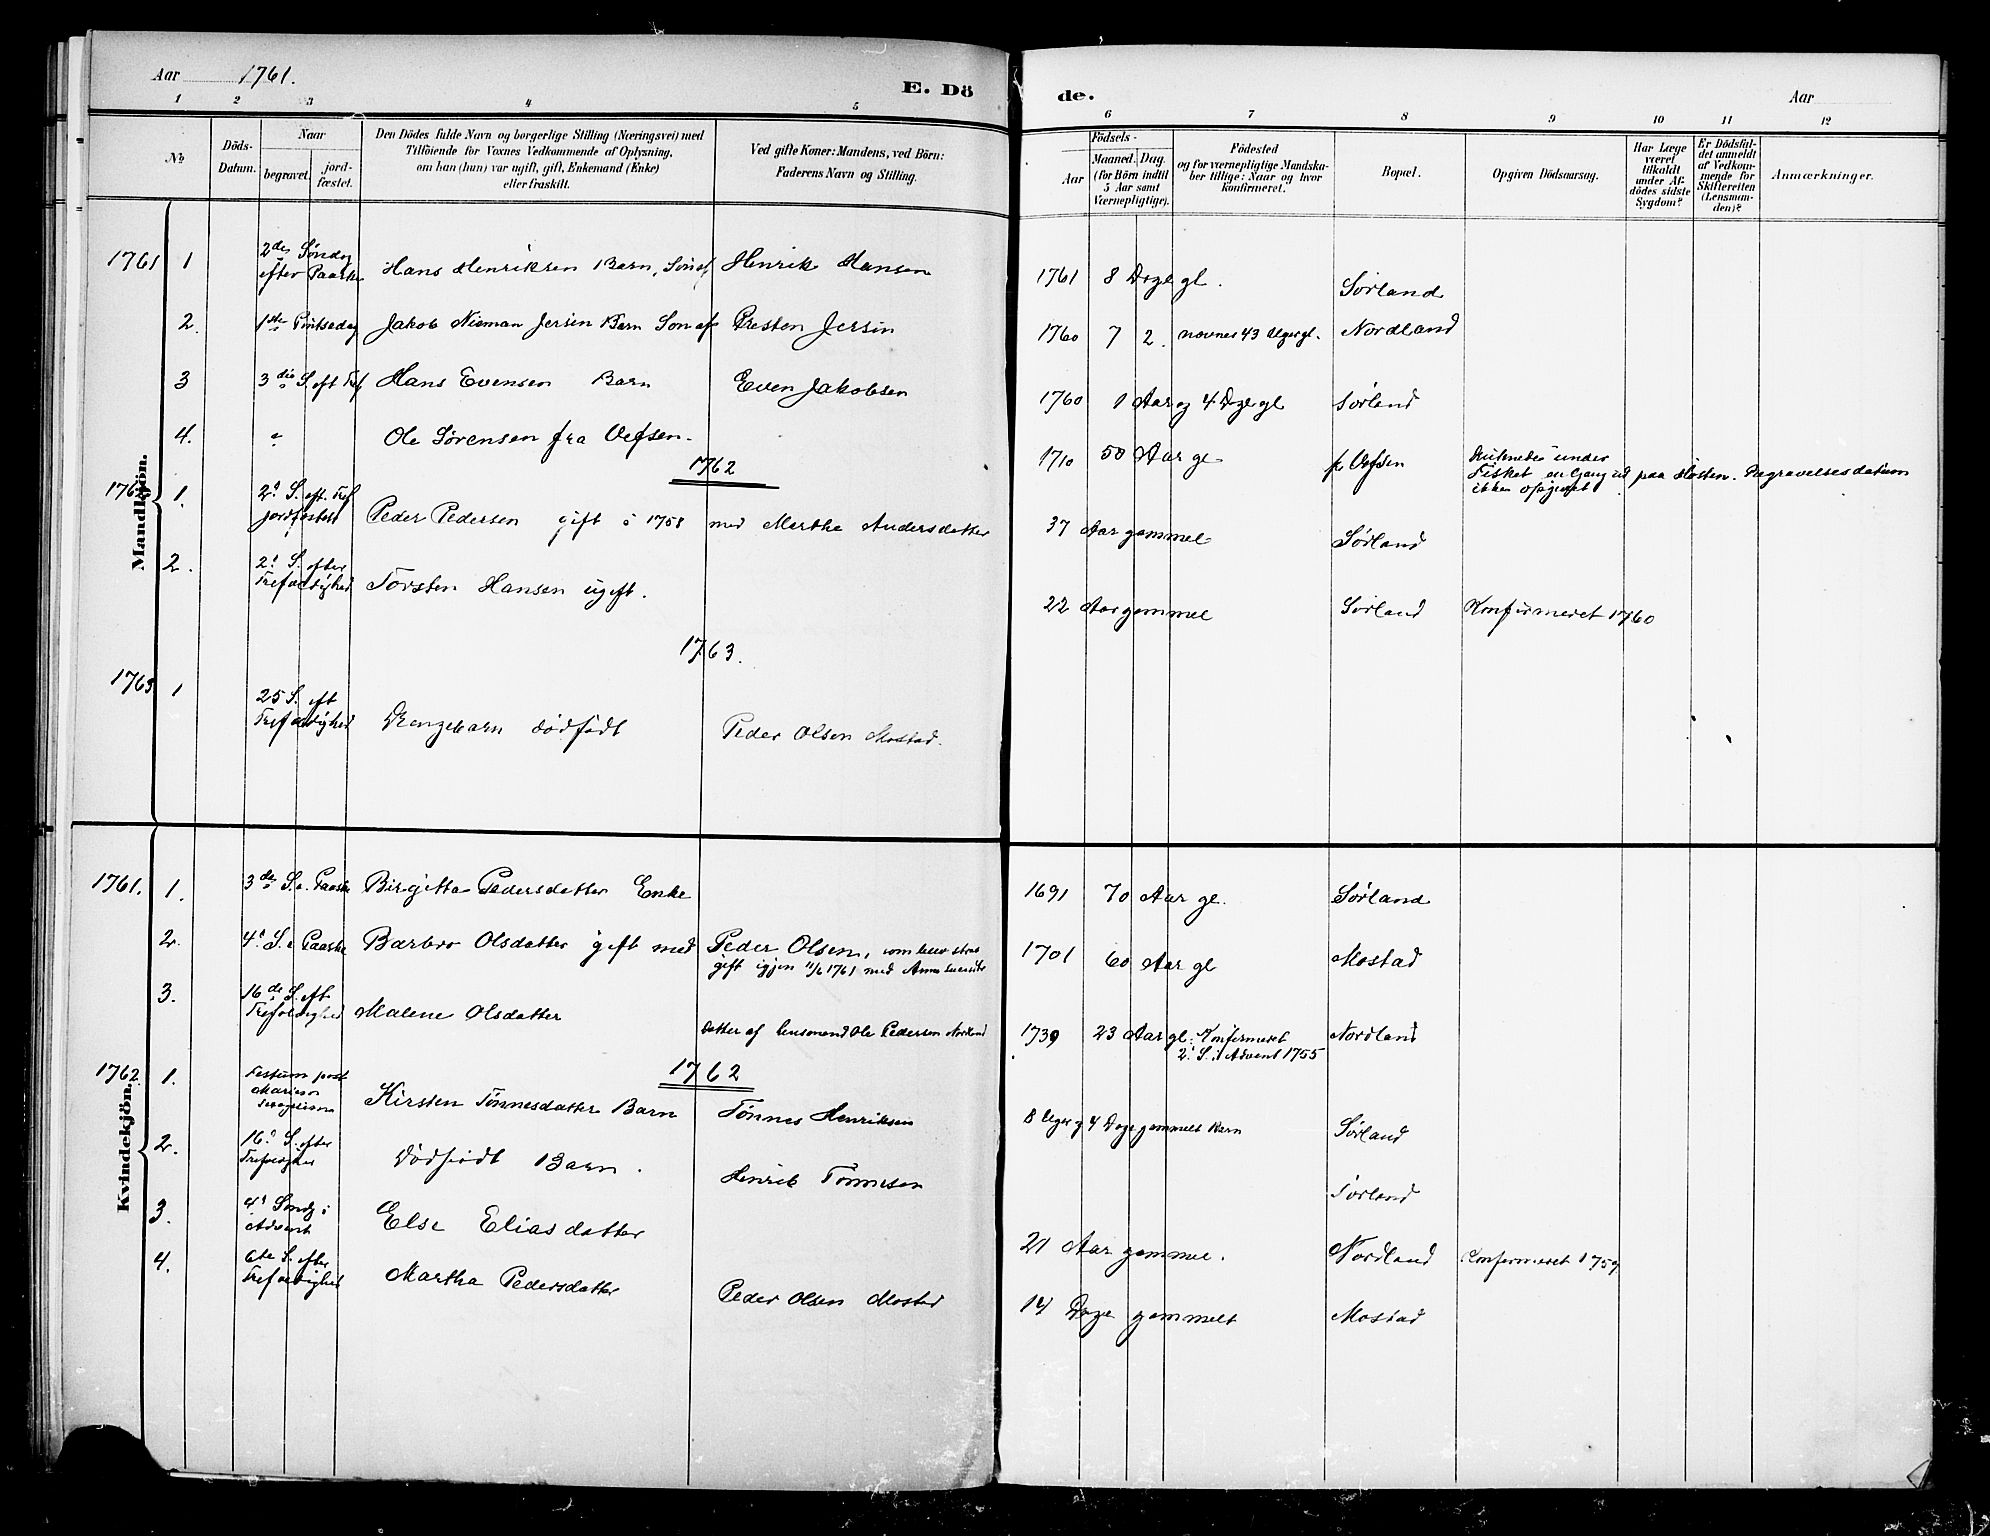 Aar 1761.
E. Dö
de.
Aar
1 2 3 4 5 6 7 8 9 10 11 12
No
Döds-Datum.
Naar
begravet.
jord-fæstet.
Den Dödes fulde Navn og borgerlige Stilling (Næringsvei) med
Tilföiende for Voxnes Vedkommende af Oplysning,
om han (hun) var ugift, gift, Enkemand (Enke)
eller fraskilt.
Ved gifte Koner: Mandens, ved Börn:
Faderens Navn og Stilling.
Födsels-
Aar
Maaned. Dag.
(for Börn indtil
5 Aar samt
Værnepligtige).
Födested
og for værnepligtige Mandska-
ber tillige: Naar og hvor
konfirmeret.
Bopæl.
Opgiven Dödsaarsag.
Har Læge
været
tilkaldt
under Af-
dödes sidste
Sygdom?
Er Dödsfal-
det anmeldt
af Vedkom-
mende for
Skifteretten
(Lensman-
den)?
Anmærkninger.
Mandkjön.
1761 1 2den Søndag efter Paaske Hans Henriksen Barn, Søn af Henrik Hansen 1761 8 Dage gl. Sørland
2. 1ste Pintsedag Jakob Nieman Jersin Barn Søn af Presten Jersin 1760 7 2. 43 Uger gl. Nordland
3 3die S. eft Tref Hans Evensen Barn Even Jakobsen 1760 1 Aar og 4 Dage gl Sørland
4. " Ole Sørensen fra Vefsen. 1710 50 Aar gl fr Vefsen Druknede under
Fisket en Gang ud paa Høsten. Begravelsesdatum
ikke opgivet
1762
1762 1. 2d S. eft. Tref jordfæstet Peder Pedersen gift i 1758 med Marthe Andersdatter 37 Aar gammel Sørland
2. 2d S. efter Trefoldighed Torsten Hansen ugift. 22 Aar gammel Sørland Konfirmeret 1760
1763.
1763 1 25 S. eft Trefoldighed Drengebarn dødfødt Peder Olsen Mostad.
Kvindekjön.
1761. 1. 3de S. e. Paaske Birgitta Pedersdatter Enke 1691 70 Aar gl. Sørland
2. 4d S. e Paaske Barbro Olsdatter gift med Peder Olsen, som blev strax
gift igjen 11/6 1761 med Anne 1701 60 Aar gl Mostad
3. 16de S. eft Trefoldighed Malene Olsdatter Datter af Lensmand Ole Pedersen Nordland 1739 23 Aar gl. Konfirmeret
2d S. i Advent 1755 Nordland
1762
1762. 1. Festum post Kirsten Tønnesdatter Barn Tønnes Henriksen 8 Uger og 4 Dage gammelt Barn Sørland
2. 16d S. efter Trefoldighed Dødfødt Barn. Henrik Tønnesen Sørland
3. 4d Søndg i Advent Else Eliasdatter 21 Aar gammel. Nordland Konfirmeret 1759
4. 6te S. efter Trefoldighed Martha Pedersdatter Peder Olsen Mostad 14 Dage gammelt Mostad